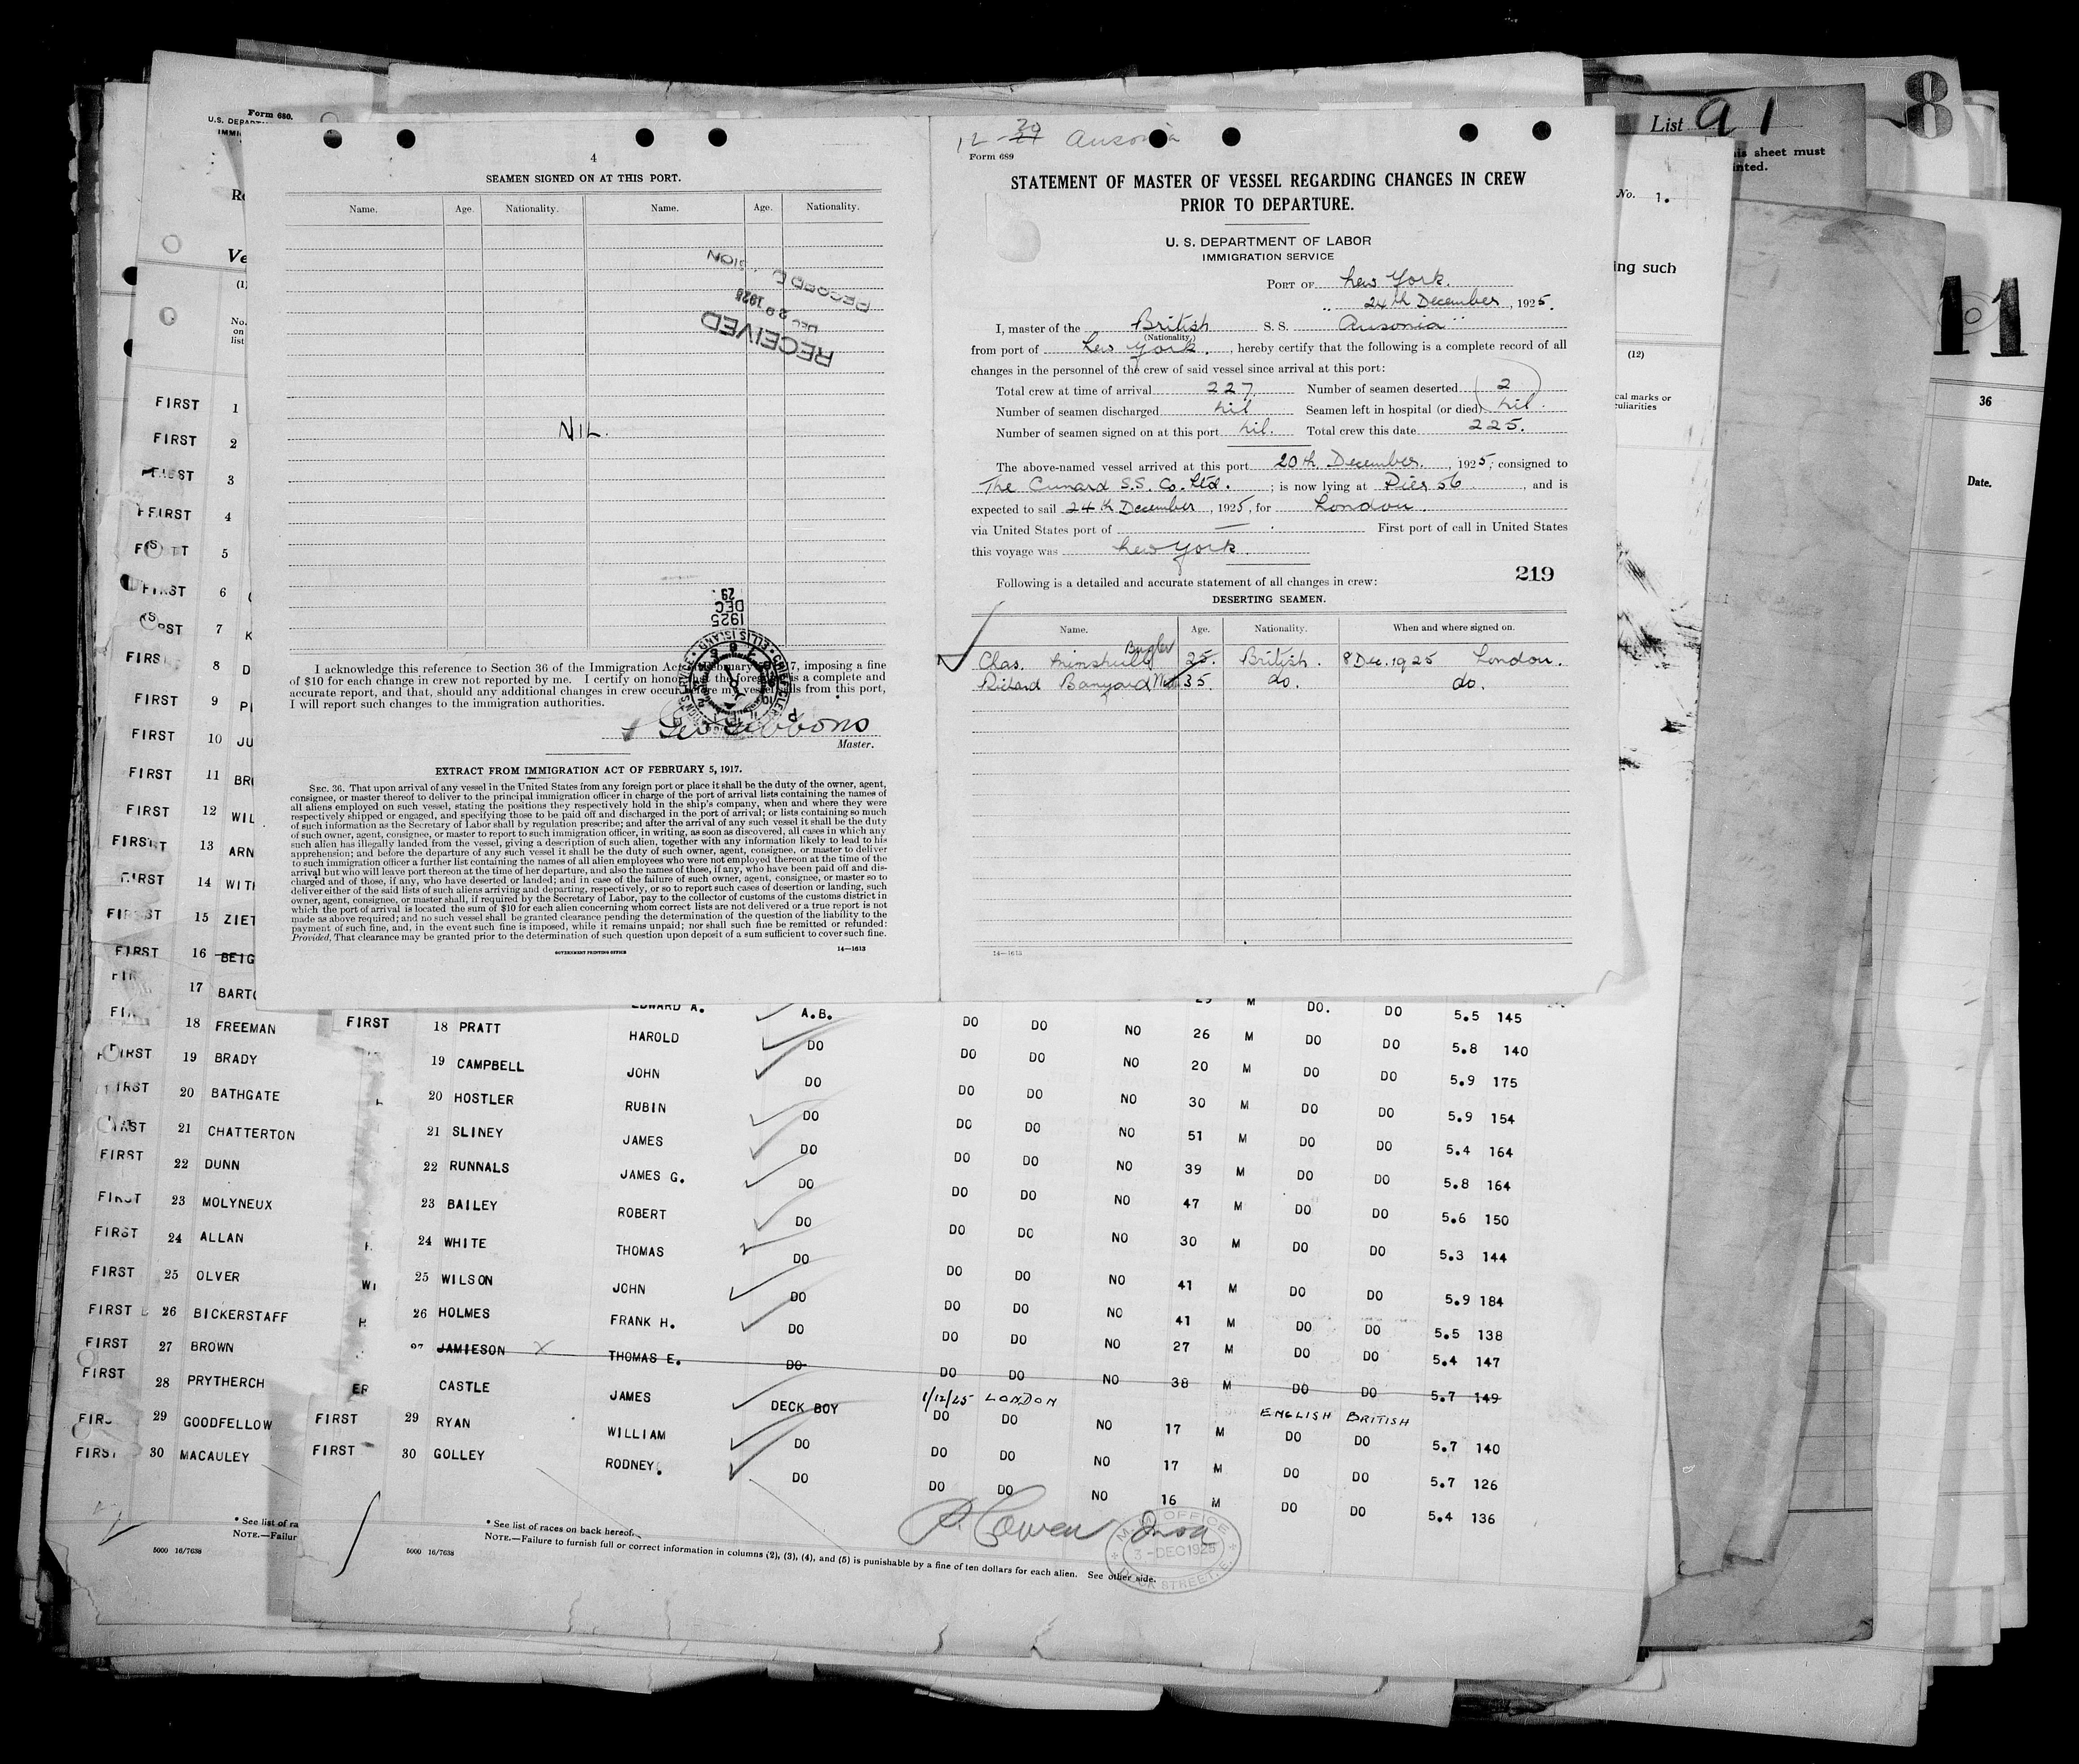 Form 680.
List 91
8
11
No. 1.
ing such
(12)
36
Date.
4
SEAMEN SIGNED ON AT THIS PORT.
Name. Age. Nationality. Name. Age. Nationality.
RECEIVED
DEC 29 1925
NIL.
1925
DEC
29
I acknowledge this reference to Section 36 of the Immigration Act 7, imposing a fine
of $10 for each change in crew not reported by me. I certify on honor is a complete and
accurate report, and that, should any additional changes in crew occur ls from this port,
I will report such changes to the immigration authorities.
Geo Gibbons
Master.
EXTRACT FROM IMMIGRATION ACT OF FEBRUARY 5, 1917.
SEC. 36. That upon arrival of any vessel in the United States from any foreign port or place it shall be the duty of the owner, agent,
consignee, or master thereof to deliver to the principal immigration officer in charge of the port of arrival lists containing the names of
all aliens employed on such vessel, stating the positions they respectively hold in the ship's company, when and where they were
respectively shipped or engaged, and specifying those to be paid off and discharged in the port of arrival; or lists containing so much
of such information as the Secretary of Labor shall by regulation prescribe; and after the arrival of any such vessel it shall be the duty
of such owner, agent, consignee, or master to report to such immigration officer, in writing, as soon as discovered, all cases in which any
such alien has illegally landed from the vessel, giving a description of such alien, together with any information likely to lead to his
apprehension; and before the departure of any such vessel it shall be the duty of such owner, agent, consignee, or master to deliver
to such immigration officer a further list containing the names of all alien employees who were not employed thereon at the time of the
arrival but who will leave port thereon at the time of her departure, and also the names of those, if any, who have been paid off and dis-
charged and of those, if any, who have deserted or landed; and in case of the failure of such owner, agent, consignee, or master so to
deliver either of the said lists of such aliens arriving and departing, respectively, or so to report such cases of desertion or landing, such
owner, agent, consignee, or master shall, if required by the Secretary of Labor, pay to the collector of customs of the customs district in
which the port of arrival is located the sum of $10 for each alien concerning whom correct lists are not delivered or a true report is not
made as above required; and no such vessel shall be granted clearance pending the determination of the question of the liability to the
payment of such fine, and, in the event such fine is imposed, while it remains unpaid; nor shall such fine be remitted or refunded:
Provided, That clearance may be granted prior to the determination of such question upon deposit of a sum sufficient to cover such fine.
GOVERNMENT PRINTING OFFICE 14—1613
12-20 Ausonia
Form 689
STATEMENT OF MASTER OF VESSEL REGARDING CHANGES IN CREW
PRIOR TO DEPARTURE.
U. S. DEPARTMENT OF LABOR
IMMIGRATION SERVICE
PORT OF New York.
24th December, 1925.
I, master of the British S. S. Ausonia
(Nationality.)
from port of New York., hereby certify that the following is a complete record of all
changes in the personnel of the crew of said vessel since arrival at this port:
Total crew at time of arrival 227 Number of seamen deserted 2
Number of seamen discharged Nil Seamen left in hospital (or died) Nil.
Number of seamen signed on at this port Nil. Total crew this date 225.
The above-named vessel arrived at this port 20th December., 1925, consigned to
The Cunard S.S. Co. Ltd. ; is now lying at Pier 56, and is
expected to sail 24th December, 1925, for London.
via United States port of — . First port of call in United States
this voyage was New York.
219
Following is a detailed and accurate statement of all changes in crew:
DESERTING SEAMEN.
Name. Age. Nationality. When and where signed on.
Chas. Minshull Bugler 25. British. 8 Dec. 1925 London.
Richard Banyard 35. do. do.
14—1613
FIRST 1
FIRST 2
FIRST 3
FIRST 4
5
FIRST 6
7
FIRST 8
FIRST 9
FIRST 10
FIRST 11
FIRST 12
FIRST 13
FIRST 14
FIRST 15
FIRST 16
17
18 FREEMAN
FIRST 19 BRADY
FIRST 20 BATHGATE
FIRST 21 CHATTERTON
FIRST 22 DUNN
FIRST 23 MOLYNEUX
FIRST 24 ALLAN
FIRST 25 OLVER
FIRST 26 BICKERSTAFF
FIRST 27 BROWN
FIRST 28 PRYTHERCH
FIRST 29 GOODFELLOW
FIRST 30 MACAULEY
EDWARD A. A.B. 29 M DO. DO 5.5 145
FIRST 18 PRATT HAROLD DO DO DO NO 26 M DO DO 5.8 140
19 CAMPBELL JOHN DO DO DO NO 20 M DO DO 5.9 175
20 HOSTLER RUBIN DO DO DO NO 30 M DO DO 5.9 154
21 SLINEY JAMES DO DO DO NO 51 M DO DO 5.4 164
22 RUNNALS JAMES G. DO DO DO NO 39 M DO DO 5.8 164
23 BAILEY ROBERT DO DO DO NO 47 M DO DO 5.6 150
24 WHITE THOMAS DO DO DO NO 30 M DO DO 5.3 144
25 WILSON JOHN DO DO DO NO 41 M DO DO 5.9 184
26 HOLMES FRANK H. DO DO DO NO 41 M DO DO 5.5 138
27 JAMIESON THOMAS E. DO DO DO NO 27 M DO DO 5.4 147
CASTLE JAMES DECK BOY DO DO NO 38 M DO DO 5.7 149
1/12/25 LONDON ENGLISH BRITISH
FIRST 29 RYAN WILLIAM DO DO DO NO 17 M DO DO 5.7 140
FIRST 30 GOLLEY RODNEY. DO DO DO NO 17 M DO DO 5.7 126
DO DO NO 16 M DO DO 5.4 136
M.M. OFFICE
3-DEC 1925
DOCK STREET. E.
* See list of ra
NOTE.—Failur
5000 16/7638
* See list of races on back hereof.
NOTE.—Failure to furnish full or correct information in columns (2), (3), (4), and (5) is punishable by a fine of ten dollars for each alien. See other side.
5000 16/7638